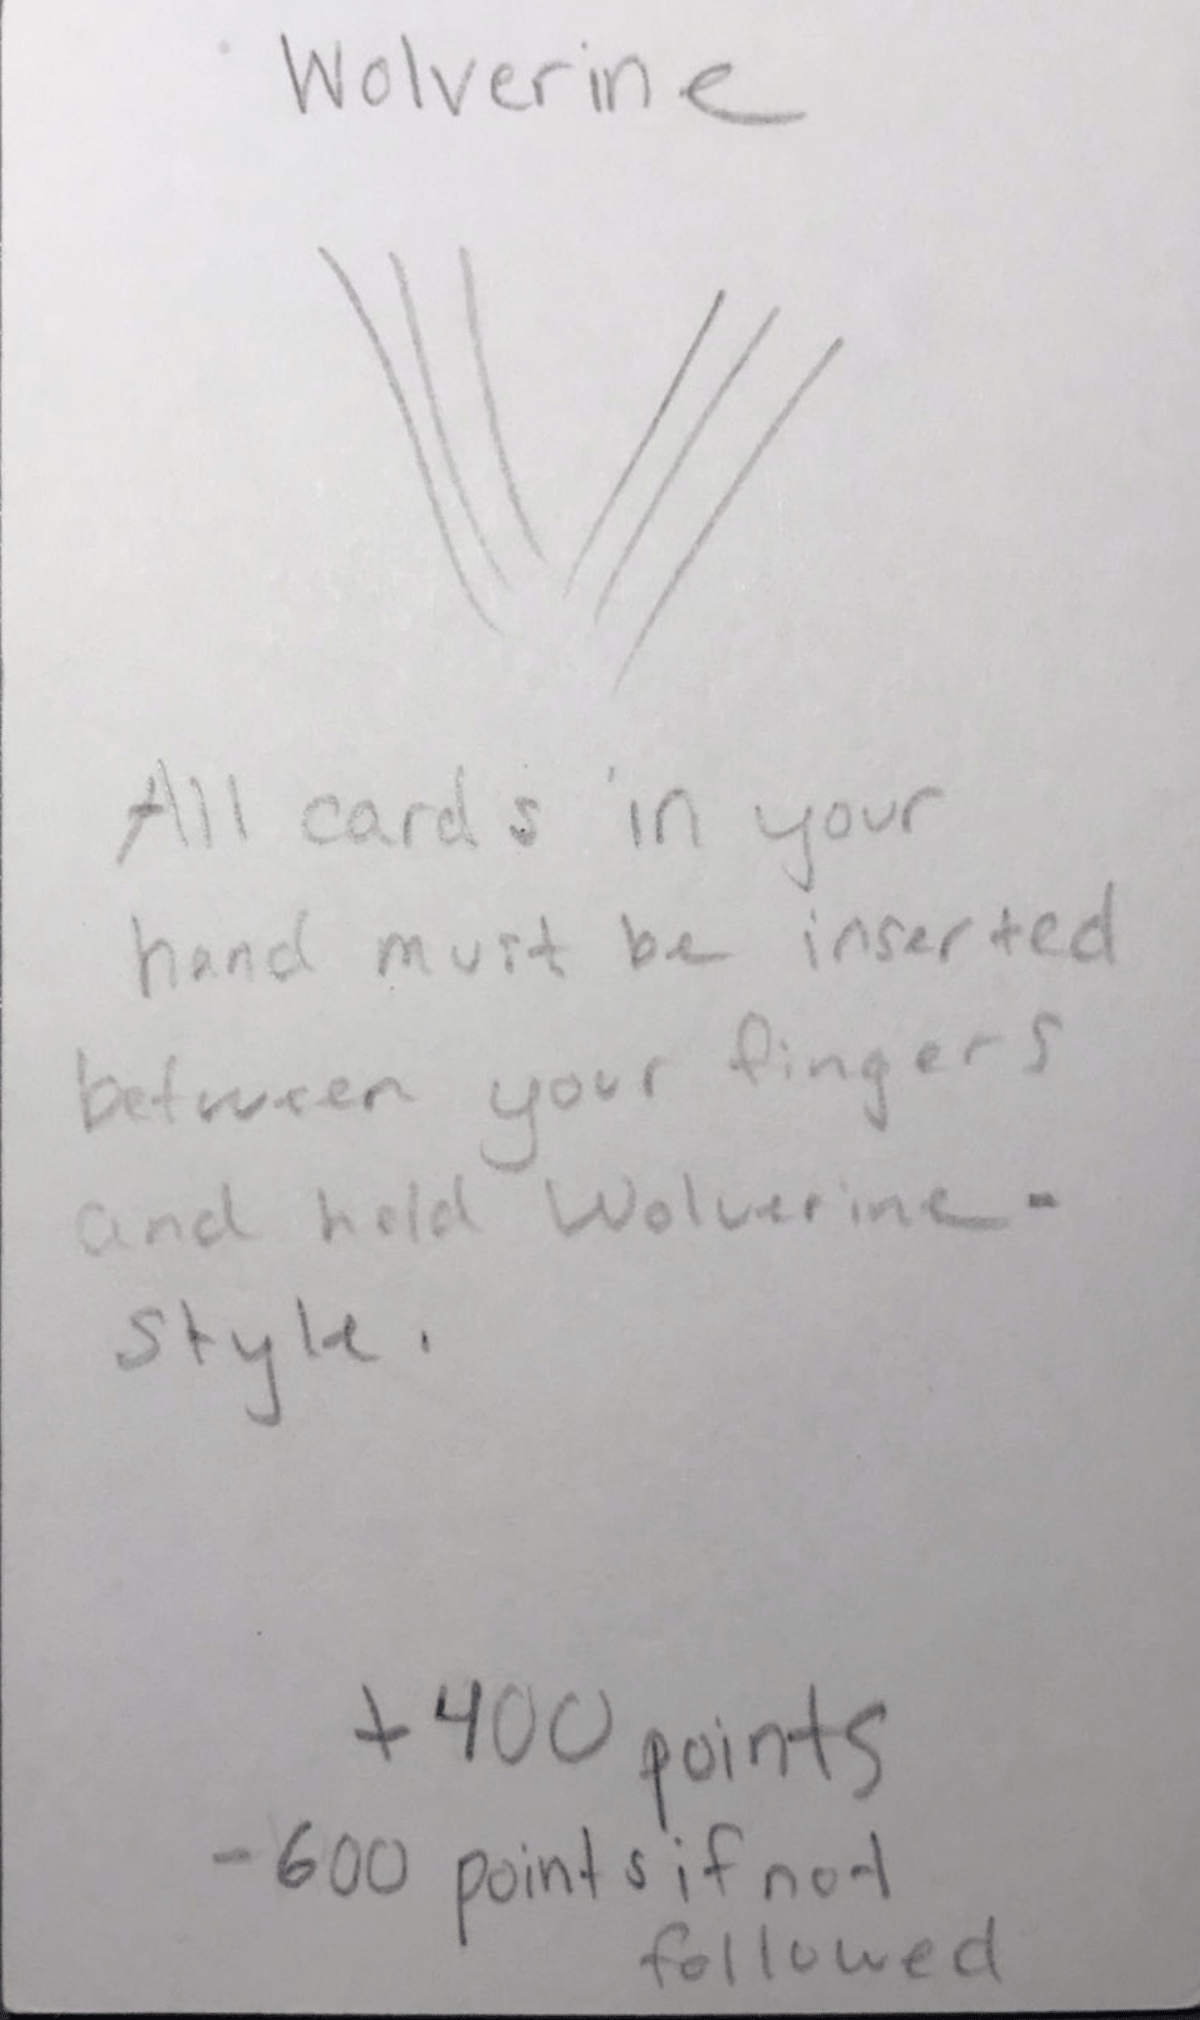 Wolverine
All cards in your
hand must be inserted
between your fingers
and held Wolverine-
style.
+400 points
-600 points if not
followed